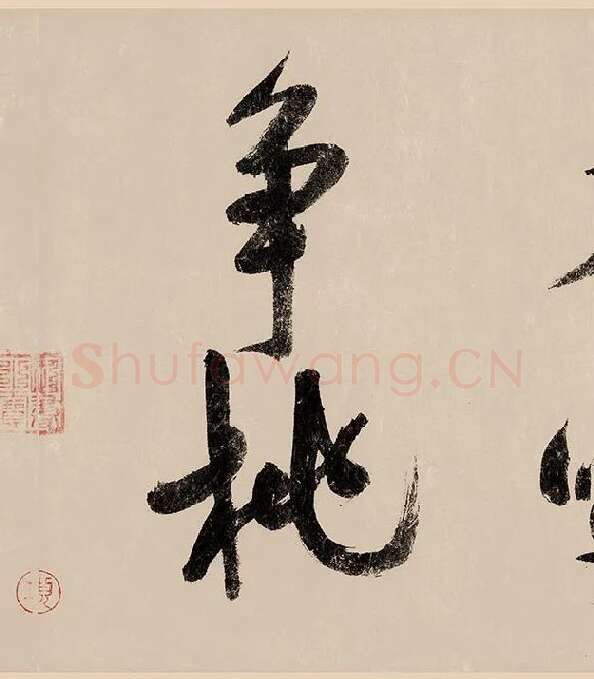 争桃
Shufawang.CN